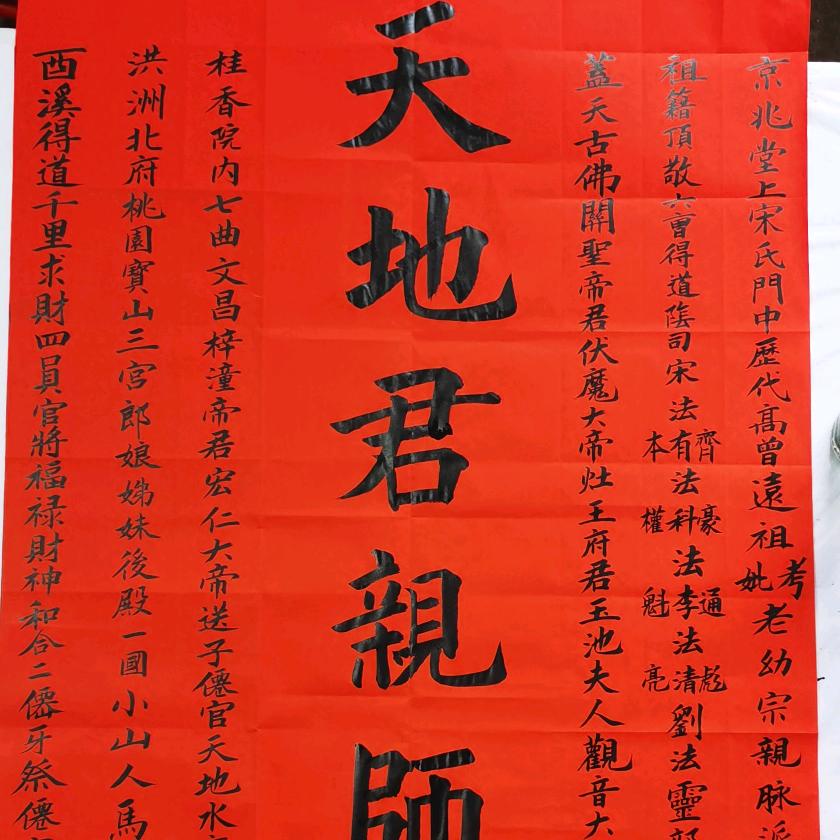 京兆堂上宋氏門中歷代高曾遠祖考妣老幼宗親脉派
祖籍頂敬六曹得道陰司宋法齊有本法豪科權法通李魁法彪清亮劉法靈
蓋天古佛關聖帝君伏魔大帝灶王府君玉池夫人觀音大
天地君親師
桂香院内七曲文昌梓潼帝君宏仁大帝送子僊官天地水
洪洲北府桃園寶山三宮郎娘娣妹後殿一國小山人馬
酉溪得道千里求財四員官將福禄財神和合二僊牙祭僊